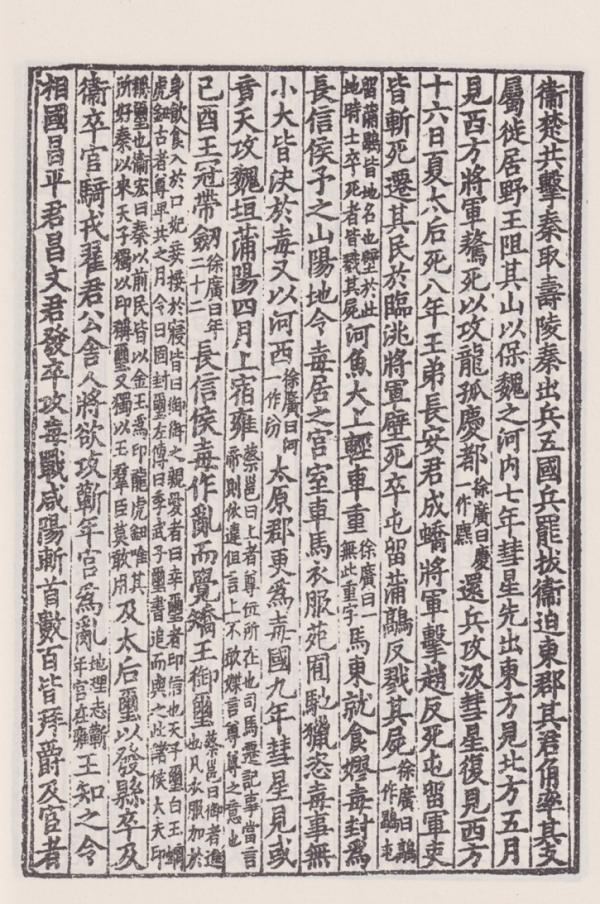 衞楚共擊秦取壽陵秦出兵五國兵罷拔衞迫東郡其君角率其支
屬徙居野王阻其山以保魏之河内七年彗星先出東方見北方五月
見西方將軍驁死以攻龍孤慶都徐廣曰慶一作麃還兵攻汲彗星復見西方
十六日夏太后死八年王弟長安君成蟜將軍擊趙反死屯留軍吏
皆斬死遷其民於臨洮將軍壁死卒屯留蒲鶮反戮其屍徐廣曰鶮一作鶡屯
留蒲鶮皆地名也壁於此地時士卒死者皆戮其屍河魚大上輕車重徐廣曰一無此重字馬東就食嫪毐封爲
長信侯予之山陽地令毐居之宮室車馬衣服苑囿馳獵恣毐事無
小大皆決於毐又以河西徐廣曰河一作汾太原郡更爲毐國九年彗星見或
竟天攻魏垣蒲陽四月上宿雍蔡邕曰上者尊位所在也司馬遷記事當言帝則依違但言上不敢媟言尊尊之意也
己酉王冠帶劒徐廣曰年二十二長信侯毐作亂而覺矯王御璽蔡邕曰御者進也凡衣服加於
身飲食入於口妃妾接於寢皆曰御御之親愛者曰幸璽者印信也天子璽白玉螭虎鈕古者尊卑共之月令曰固封璽左傳曰季武子璽書追而與之此諸侯大夫印
稱璽也衞宏曰秦以前民皆以金玉爲印龍虎鈕唯其所好秦以來天子獨以印稱璽又獨以玉羣臣莫敢用及太后璽以發縣卒及
衞卒官騎戎翟君公舍人將欲攻蘄年宮爲亂地理志蘄年宮在雍王知之令
相國昌平君昌文君發卒攻毐戰咸陽斬首數百皆拜爵及官者